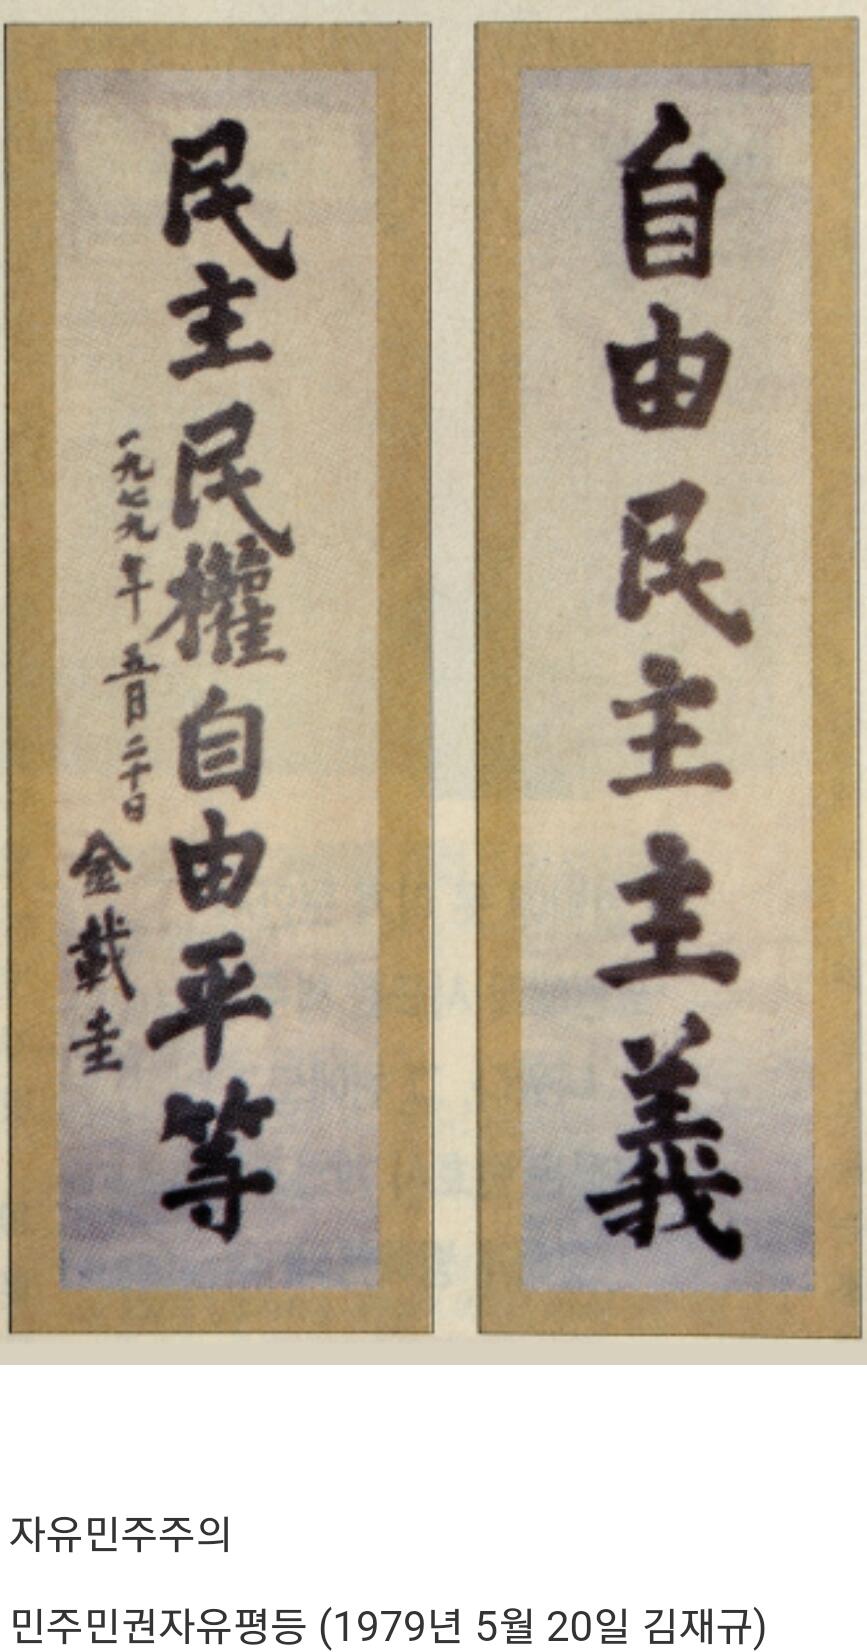 自由民主主義
民主民權自由平等
一九七九年 五月二十日
金載圭
자유민주주의
민주민권자유평등 (1979년 5월 20일 김재규)